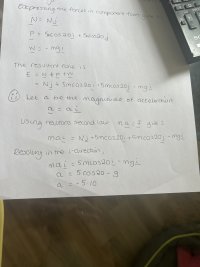 Expressing the forces in component form gives
N = Nj
P = 5mcos20i + 5m20j
W = -mgj
The resultant force is
F = N + P + W
= Nj + 5mcos20i + 5mcos20j - mgj
Let a be the magnitude of acceleration
a = ai
Using Newton's second law: ma = F gives
mai = Nj + 5mcos20i + 5mcos20j - mgj
Resolving in the i-direction,
mai = 5mcos20i - mgi
a = 5cos20 - g
a = -5.10